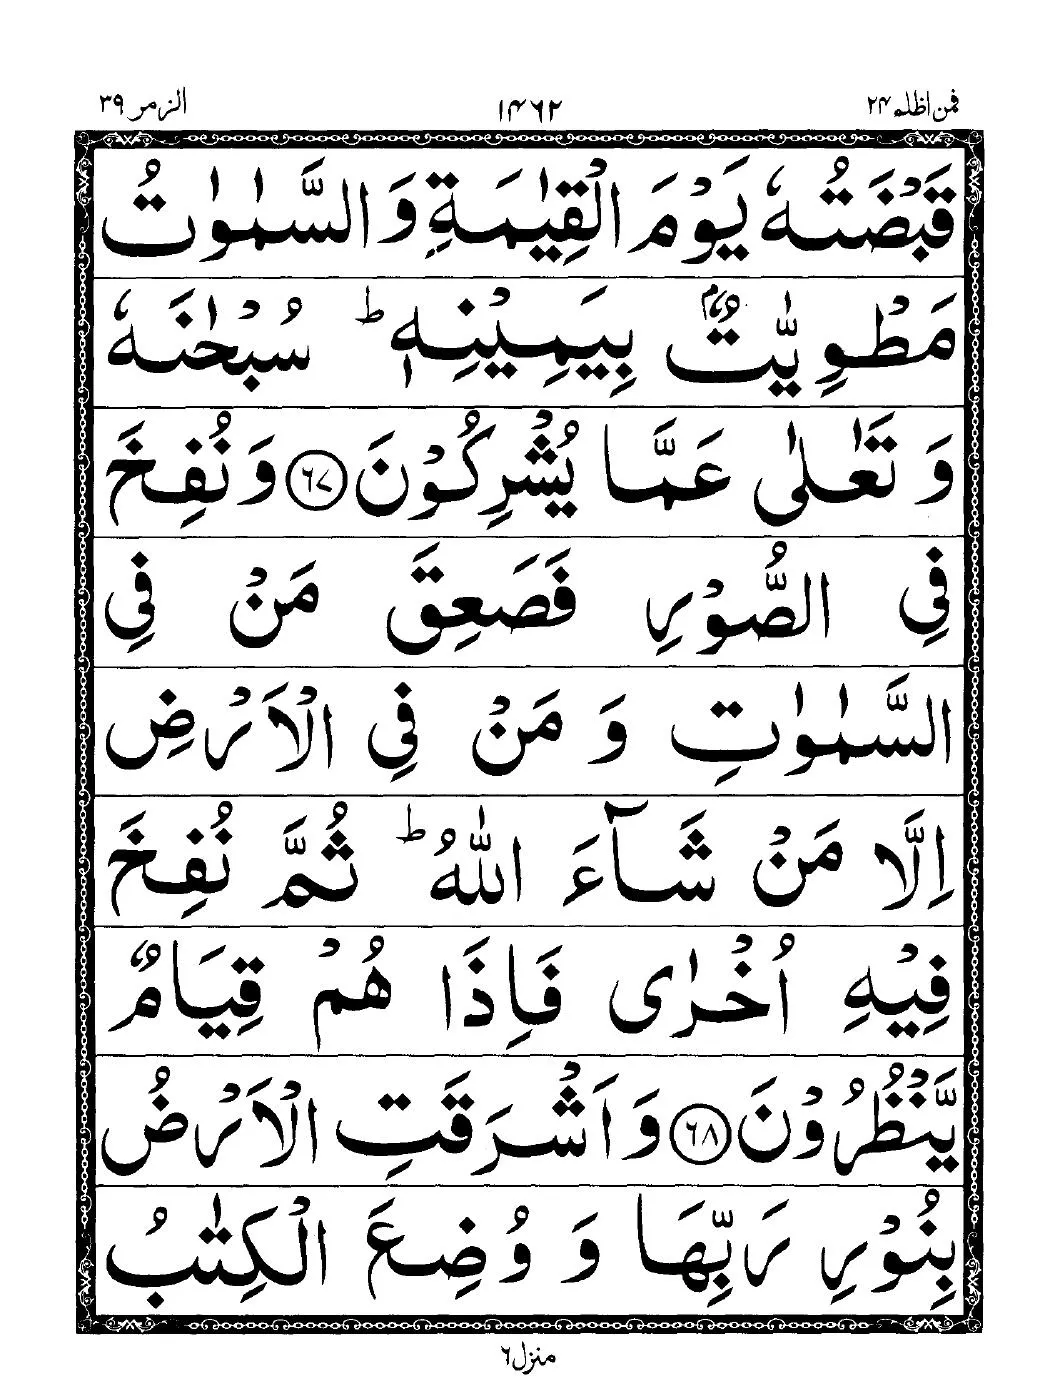 فمن اظلم ۲۴ ۱۴۶۲ الزمر ۳۹
قَبْضَتُهٗ يَوْمَ الْقِيٰمَةِ وَ السَّمٰوٰتُ
مَطْوِيّٰتٌۢ بِيَمِيْنِهٖ ؕ سُبْحٰنَهٗ
وَ تَعٰلٰى عَمَّا يُشْرِكُوْنَ ﴿۶۷﴾ وَ نُفِخَ
فِي الصُّوْرِ فَصَعِقَ مَنْ فِي
السَّمٰوٰتِ وَ مَنْ فِي الْاَرْضِ
اِلَّا مَنْ شَآءَ اللّٰهُ ؕ ثُمَّ نُفِخَ
فِيْهِ اُخْرٰى فَاِذَا هُمْ قِيَامٌ
يَّنْظُرُوْنَ ﴿۶۸﴾ وَ اَشْرَقَتِ الْاَرْضُ
بِنُوْرِ رَبِّهَا وَ وُضِعَ الْكِتٰبُ
منزل ۶